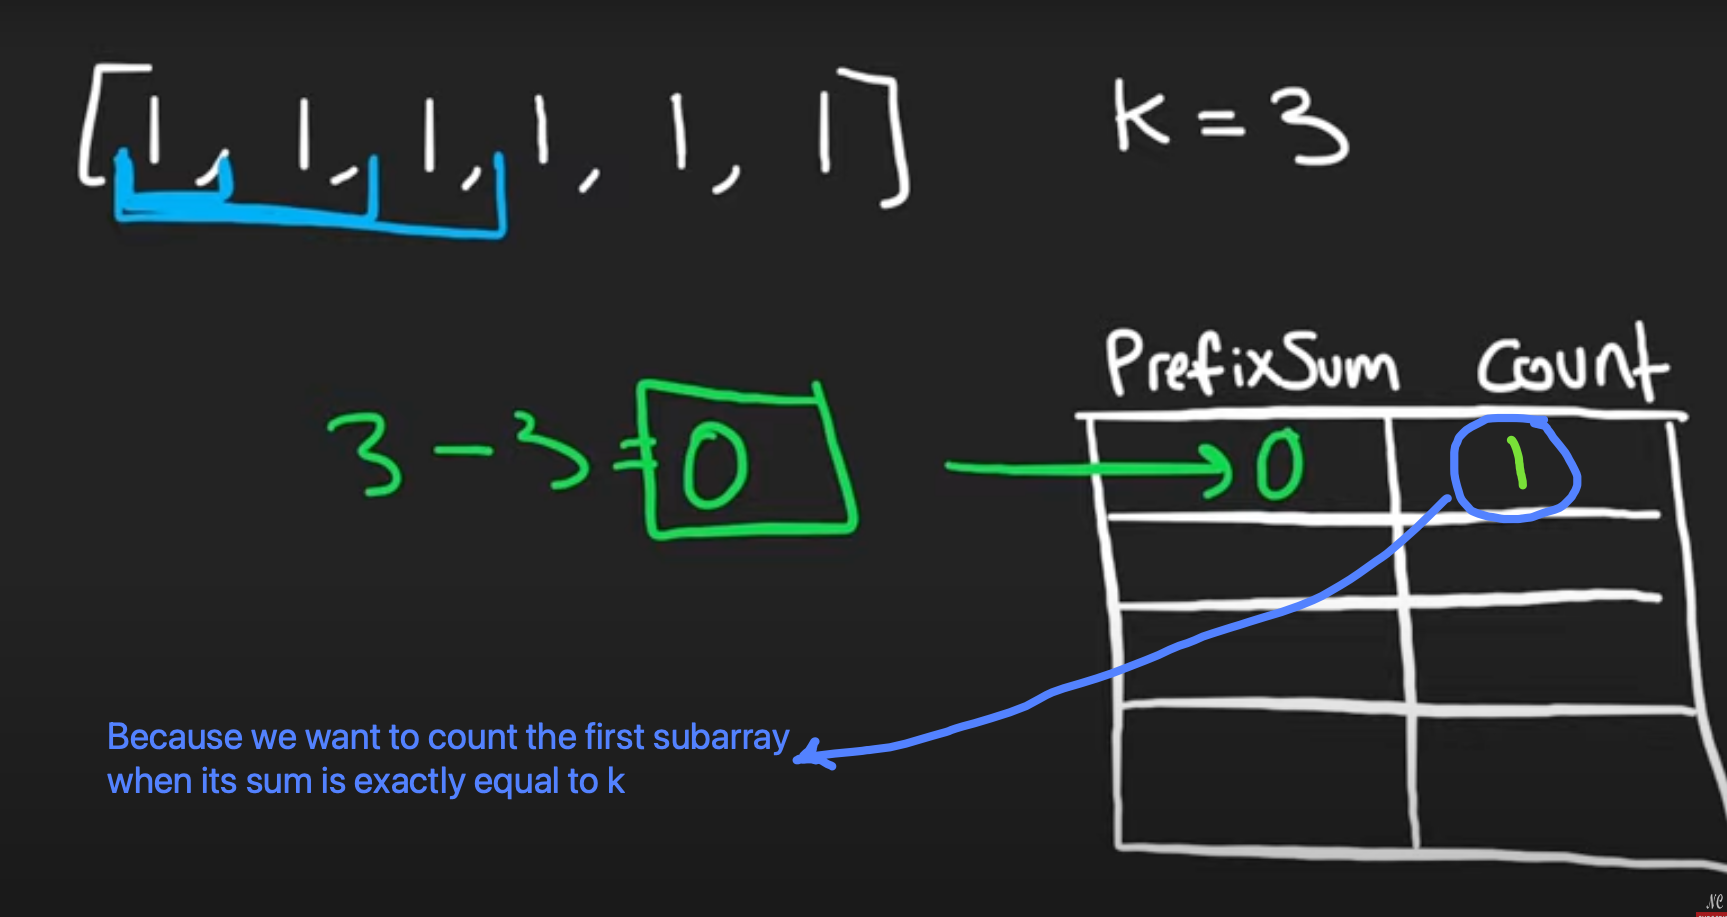 [1, 1, 1, 1, 1, 1] K = 3
PrefixSum Count
3 - 3 = 0 → 0 1
Because we want to count the first subarray
when its sum is exactly equal to k
NC